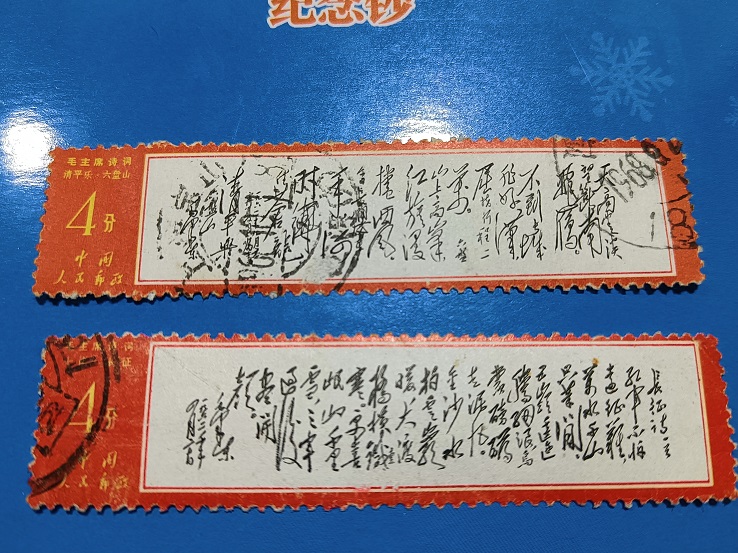 纪念钞
毛主席诗词
清平乐·六盘山
4分
中国
人民邮政
天高云淡
望断南
飞雁
不到长城
非好汉
屈指行程二
万
六盘
山上高峰
红旗漫
卷西风
1968
毛主席诗词
4分
中国
人民邮政
长征诗一首
红军不怕
远征难
万水千山
只等闲
五岭逶迤
腾细浪乌
蒙磅礴
走泥丸
金沙水
拍云崖
暖大渡
桥横铁索
寒更喜
岷山千里
雪三军
过后
尽开
颜
毛泽东